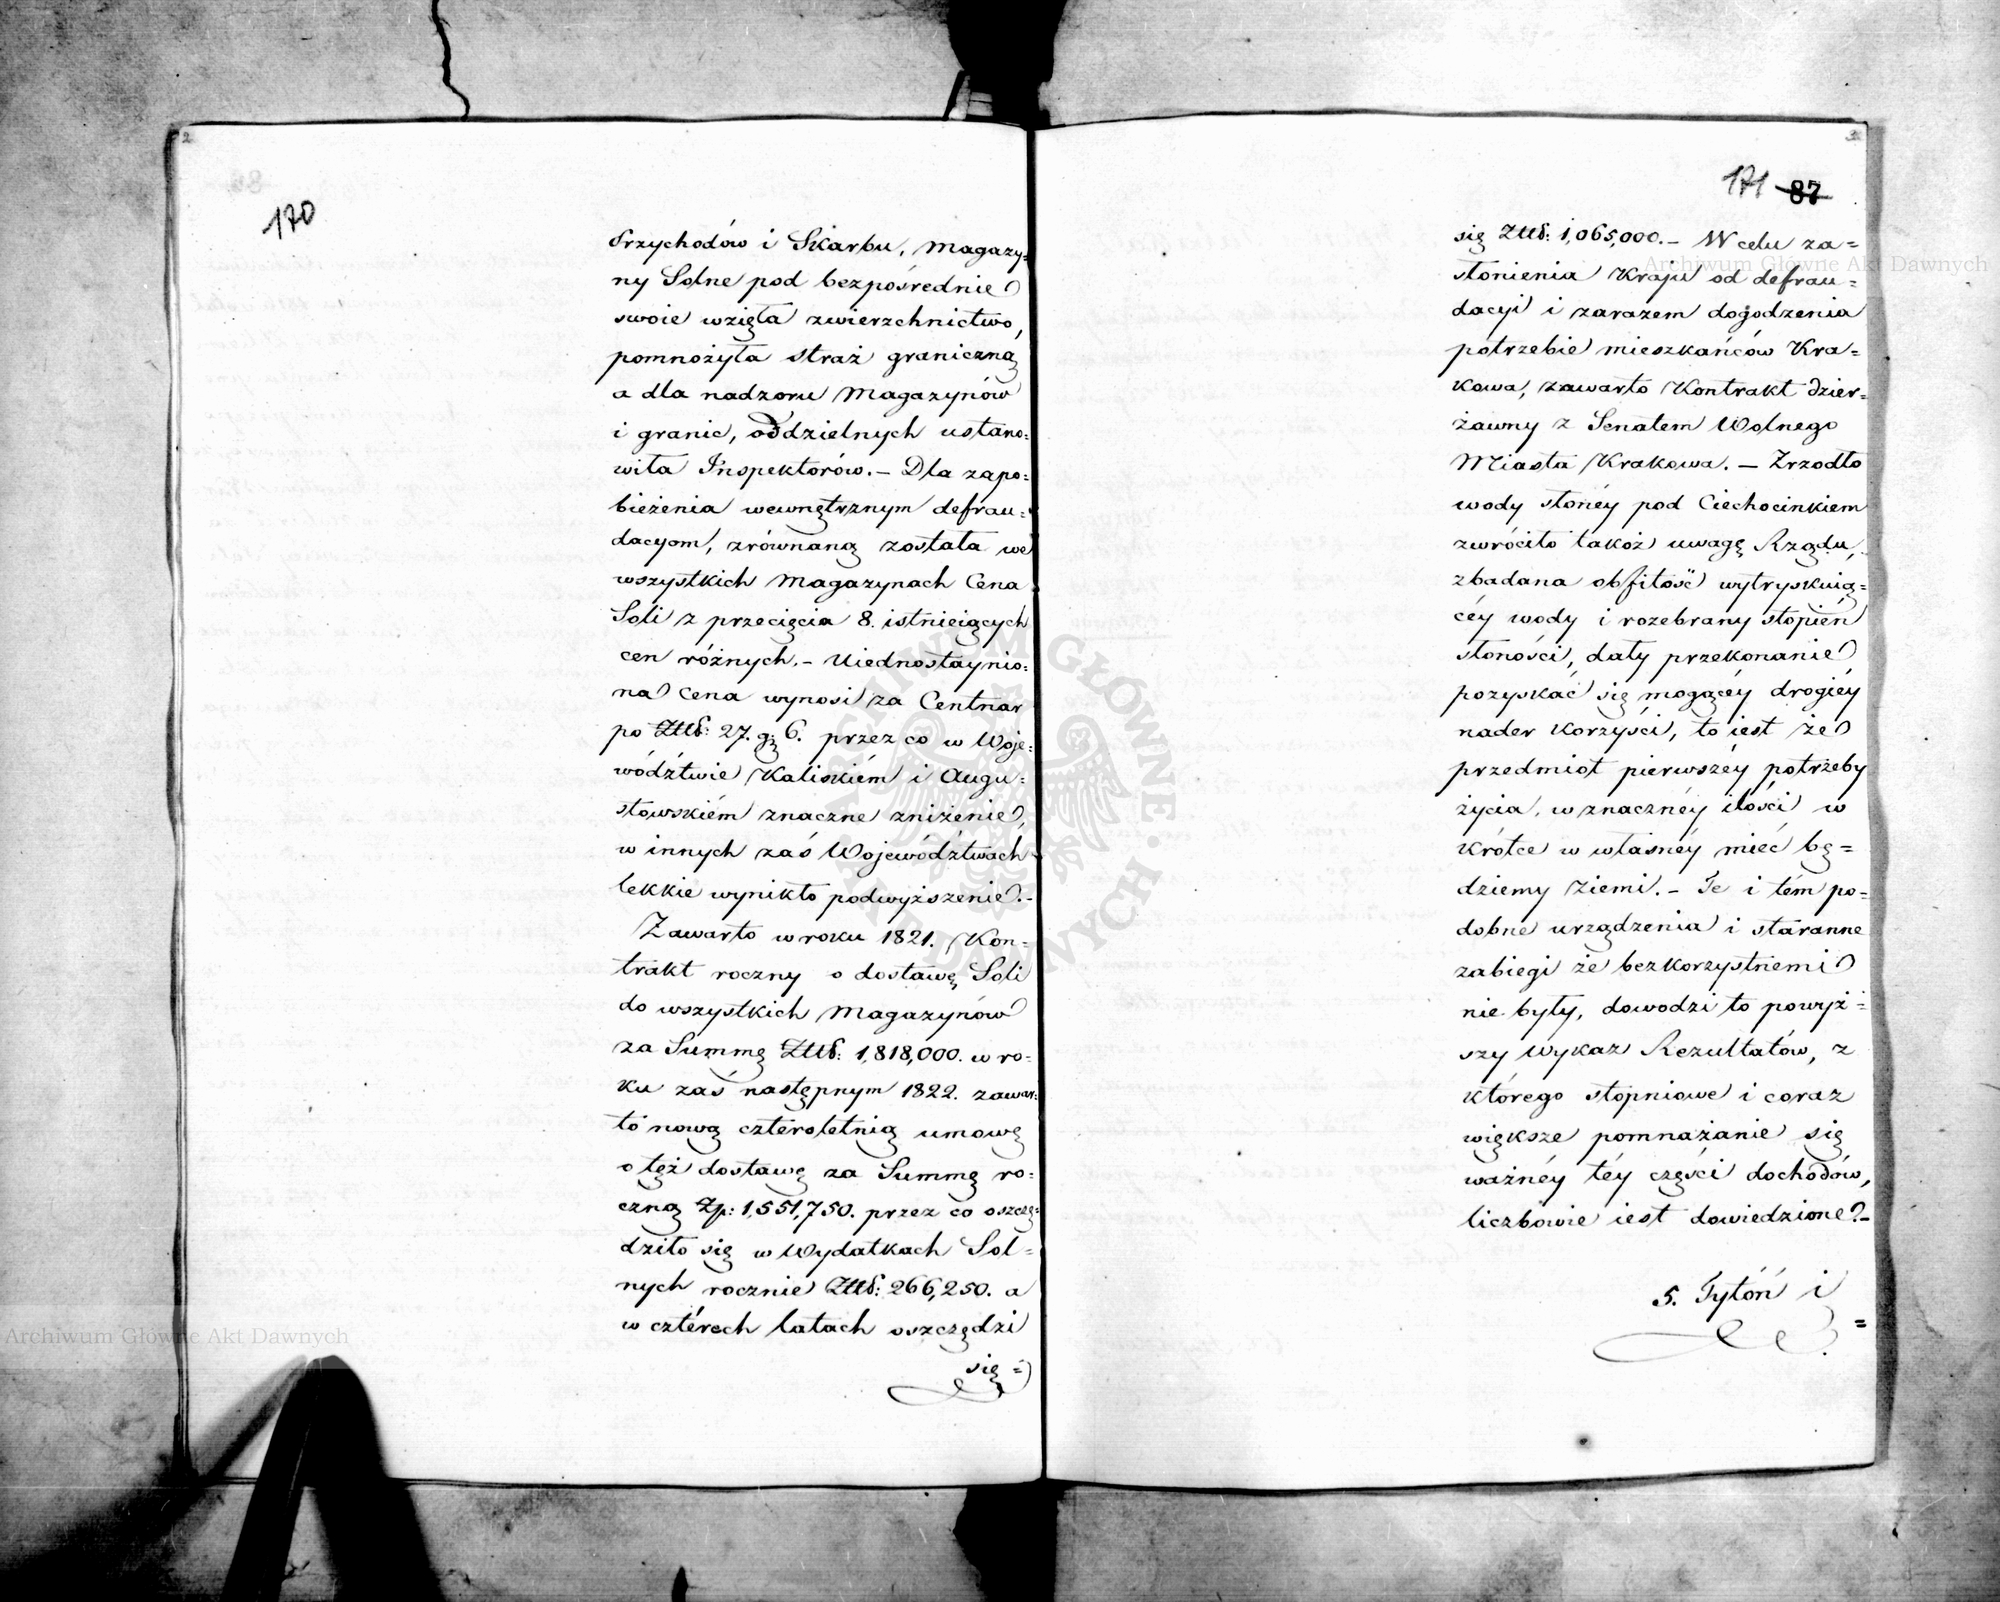 2
170
Przychodów i Skarbu, Magazy=
ny Solne pod bezpośrednie
swoie wzięła zwierzchnictwo,
pomnożyła straż graniczną
a dla nadzoru Magazynów
i granic, oddzielnych ustano=
wiła Inspektorów.– Dla zapo=
bieżenia wewnętrznym defrau=
dacyom, zrównaną została we
wszystkich Magazynach Cena
Soli z przecięcia 8. istnieiących
cen różnych.– Uiednostaynio=
na Cena wynosi za Centnar
po Złtł: 27. g: 6. przez co w Woje=
wództwie Kaliskiém i Augu=
stowskiém znaczne zniżenie,
w innych zaś Województwach
lekkie wynikło podwyższenie.–
Zawarto w roku 1821. Kon=
trakt roczny o dostawę Soli
do wszystkich Magazynów
za Summę Złtł: 1,818,000. w ro=
ku zaś następnym 1822. zawar=
tó nową czteroletnią umowę
o też dostawę za Summę ro=
czną Zp: 1,551,750. przez co oszczę=
dziło się w Wydatkach Sol=
nych rocznie Złtł: 266,250. a
w czterech latach oszczędzi
się =
3
171 87
się Złtł: 1,065,000.– W celu za=
słonienia Kraju od defrau=
dacyi i zarazem dogodzenia
potrzebie mieszkańców Kra=
kowa, zawarto Kontrakt dzier=
żawny z Senatem Wolnego
Miasta Krakowa.– Zrzodło
wody słonéy pod Ciechocinkiem
zwróciło takoż uwagę Rządu,
zbadana obfitość wytryskuią=
céy wody i rozebrany stopień
słoności, dały przekonanie
pozyskać się mogącéy drogiéy
nader korzyści, to iest że
przedmiot pierwszéy potrzeby
życia, w znacznéy ilości w
krótce w własnéy mieć bę=
dziemy ziemi.– Te i tém po=
dobne urządzenia i staranne
zabiegi że bezkorzystnemi
nie były, dowodzi to powyż=
szy Wykaz Rezultatów, z
którego stopniowe i coraz
większe pomnażanie się
ważnéy téy części dochodów,
liczbowie iest dowiedzione.–
5. Tytóń i
=
Archiwum Główne Akt Dawnych
Archiwum Główne Akt Dawnych
ARCHIWUM GŁÓWNE AKT DAWNYCH